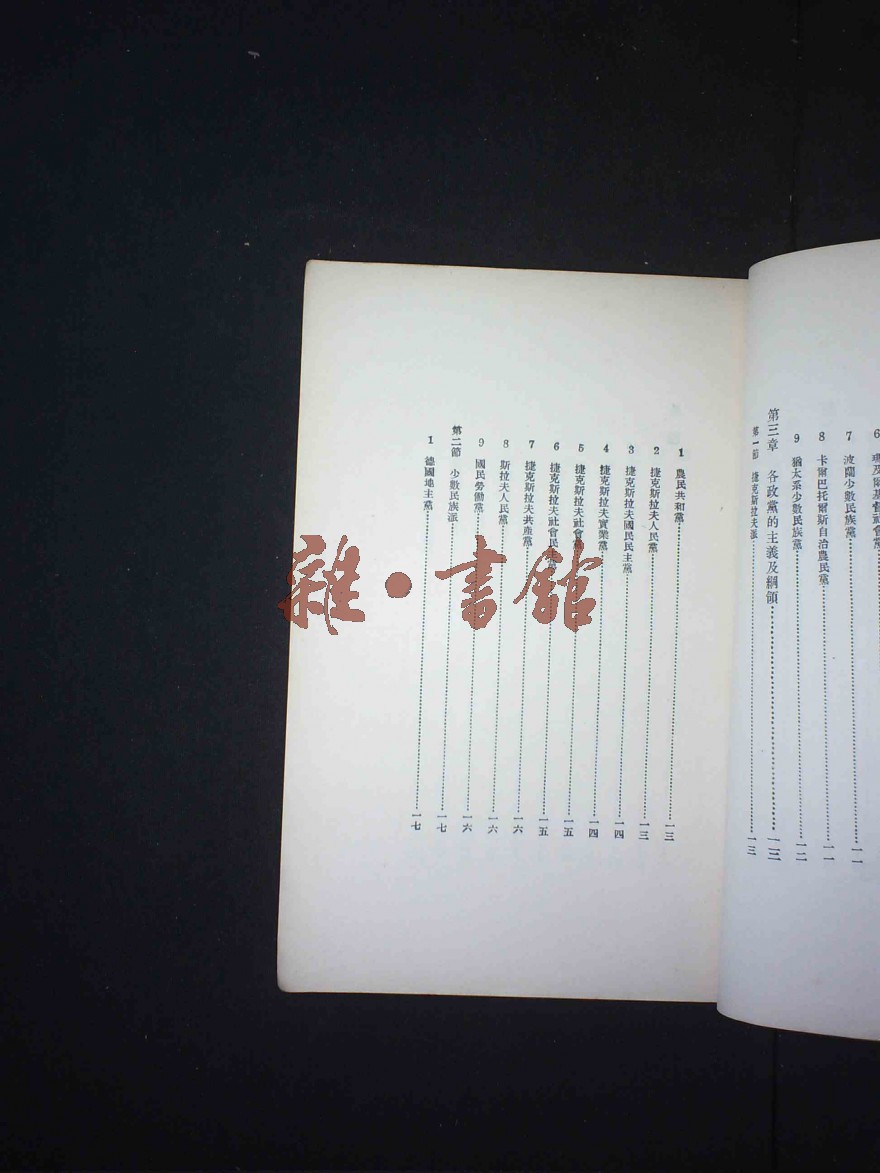 6 瑪及爾基督社會黨
7 波蘭少數民族黨……一一
8 卡爾巴托爾斯自治農民黨……一一
9 猶太系少數民族黨……一二
第三章 各政黨的主義及綱領……一三
第一節 捷克斯拉夫派……一三
1 農民共和黨……一三
2 捷克斯拉夫人民黨……一三
3 捷克斯拉夫國民民主黨……一四
4 捷克斯拉夫實業黨……一四
5 捷克斯拉夫社會黨……一五
6 捷克斯拉夫社會民主黨……一五
7 捷克斯拉夫共產黨……一六
8 斯拉夫人民黨……一六
9 國民勞働黨……一六
第二節 少數民族派……一七
1 德國地主黨……一七
雜·書館